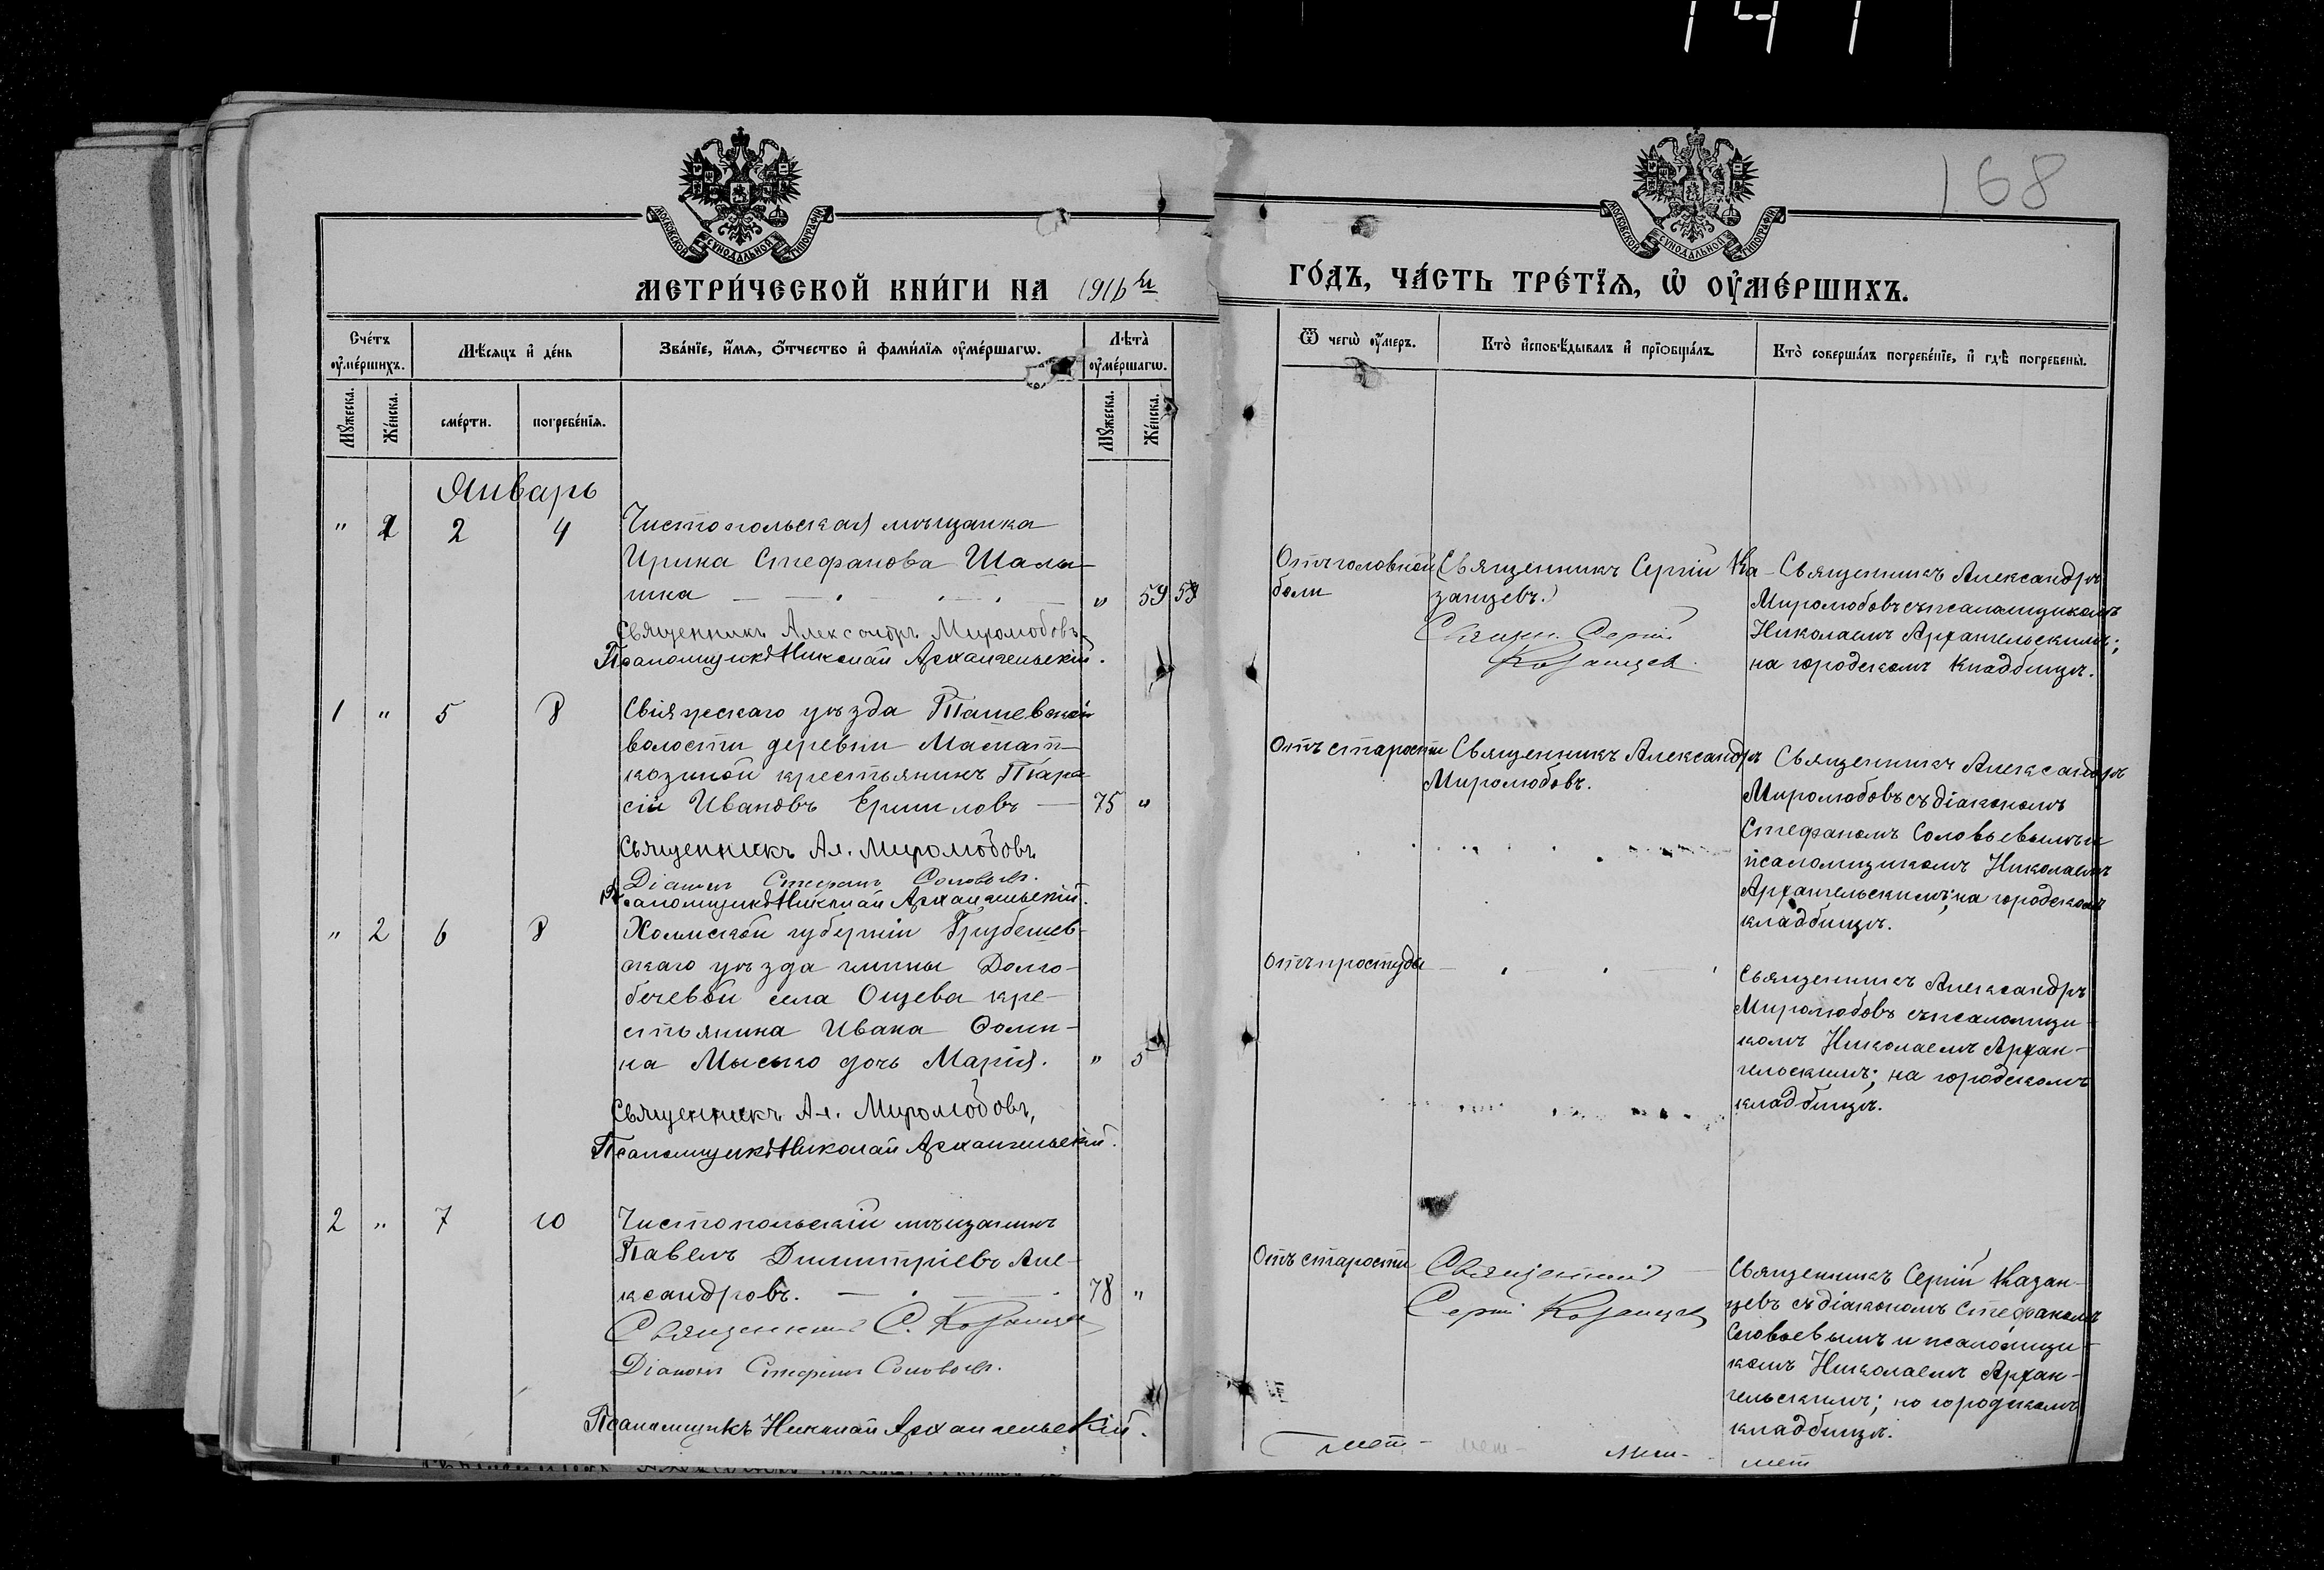 141
168
МОСКОВСКОЙ СѴНОДАЛЬНОЙ ТИПОГРАФІИ
МОСКОВСКОЙ СѴНОДАЛЬНОЙ ТИПОГРАФІИ
МЕТРИ́ЧЕСКОЙ КНИ́ГИ НА 1916й ГО́ДЪ, ЧА́СТЬ ТРЕ́ТЇѦ, Ѡ҆ ОУ҆МЕ́РШИХЪ.
Сче́тъ оу҆ме́ршихъ.
Мѣ́сяцъ и҆ де́нь
Зва́нїе, и҆́мѧ, ѻ҆́тчество и҆ фами́лїѧ оу҆ме́ршагѡ.
Лѣ́та̀ оу҆ме́ршагѡ.
Ѿ чегѡ̀ оу҆́меръ.
Кто̀ и҆сповѣ́дывалъ и҆ прїѡбща́лъ
Кто̀ соверша́лъ погребе́нїе, и҆ гдѣ̀ погребены̀.
Мꙋ́жеска.
Же́нска.
сме́рти.
погребе́нїѧ.
Мꙋ́жеска.
Же́нска.
Январь
" 1 2 4 Чистопольская мѣщанка
Ирина Стефанова Шалы-
гина " 59 59
Священникъ Александръ Миролюбовъ.
Псаломщикъ Николай Архангельскій.
Отъ головной
боли
Священникъ Сергій Ка-
занцевъ.
Священ. Сергій
Казанцев.
Священникъ Александръ
Миролюбовъ съ псаломщикомъ
Николаемъ Архангельскимъ;
на городскомъ кладбищѣ.
1 " 5 8 Свіяжскаго уѣзда Ташевской
волости деревни Маматъ-
козиной крестьянинъ Тара-
сій Ивановъ Ермиловъ 75 "
Священникъ Ал. Миролюбовъ
Діаконъ Стефанъ Соловьев.
Псаломщикъ Николай Архангельскій.
Отъ старости
Священникъ Александръ
Миролюбовъ.
Священникъ Александръ
Миролюбовъ съ діакономъ
Стефаномъ Соловьевымъ и
псаломщикомъ Николаемъ
Архангельскимъ; на городскомъ
кладбищѣ.
" 2 6 8 Холмской губерніи Грубешев-
скаго уѣзда гмины Долго-
бечевой села Ощева кре-
стьянина Ивана Ѳоми-
на Мысько дочь Марія. " 5
Священникъ Ал. Миролюбовъ,
Псаломщикъ Николай Архангельскій.
Отъ простуды
Священникъ Александръ
Миролюбовъ съ псаломщи-
комъ Николаемъ Архан-
гельскимъ; на городскомъ
кладбищѣ.
2 " 7 10 Чистопольскій мѣщанинъ
Павелъ Димитріевъ Але-
ксандровъ. 78 "
Священникъ С. Казанцев
Діаконъ Стефанъ Соловьев.
Псаломщикъ Николай Архангельскій.
Отъ старости
Священникъ
Сергій Казанцев
Священникъ Сергій Казан-
цевъ съ діакономъ Стефаномъ
Соловьевымъ и псаломщи-
комъ Николаемъ Архан-
гельскимъ; на городскомъ
кладбищѣ.